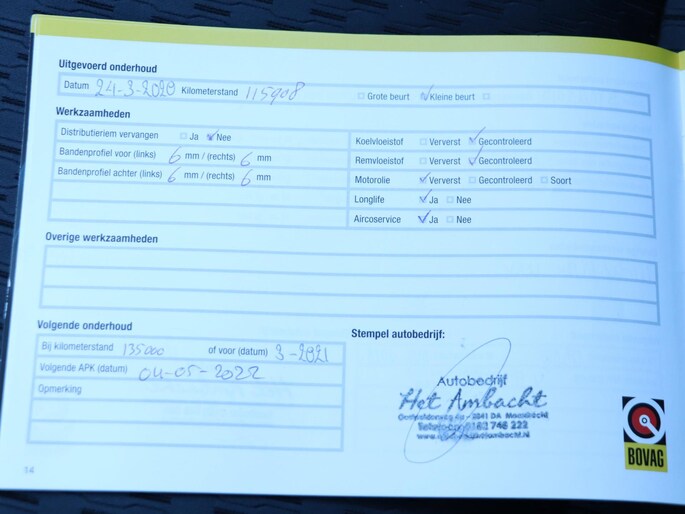 Uitgevoerd onderhoud
Datum 24-3-2020 Kilometerstand 115908 Grote beurt Kleine beurt
Werkzaamheden
Distributieriem vervangen Ja Nee
Bandenprofiel voor (links) 6 mm / (rechts) 6 mm
Bandenprofiel achter (links) 6 mm / (rechts) 6 mm
Koelvloeistof Ververst Gecontroleerd
Remvloeistof Ververst Gecontroleerd
Motorolie Ververst Gecontroleerd Soort
Longlife Ja Nee
Aircoservice Ja Nee
Overige werkzaamheden
Volgende onderhoud
Bij kilometerstand 135000 of voor (datum) 3-2021
Volgende APK (datum) 04-05-2022
Opmerking
Stempel autobedrijf:
Autobedrijf
Het Ambacht
BOVAG
14